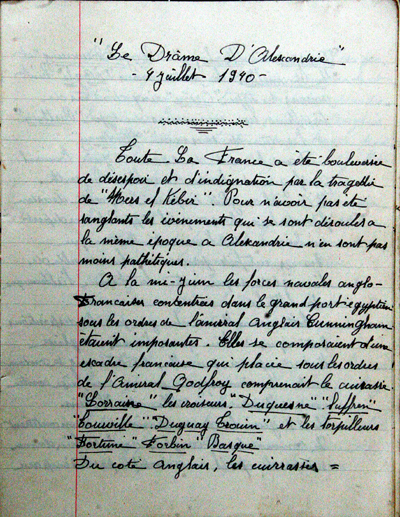 "Le Drâme D'Alexandrie"
- 4 juillet 1940 -
Toute La France a été bouleversée
de désespoir et d'indignation par la tragédie
de "Mers el Kebir". Pour n'avoir pas été
sanglants les évènements qui se sont déroulés a
la même epoque a Alexandrie n'en sont pas
moins pathétiques.
A la mi-juin les forces navales anglo-
Françaises concentrées dans le grand port égyptien
sous les ordres de l'amiral Anglais Cunningham
étaient imposantes. Elles se composaient d'une
escadre française qui placée sous les ordres
de l'Amiral Godfroy comprenait le cuirassé
"Lorraine" les croiseurs "Duquesne" "Suffren"
"Tourville" "Duguay Trouin" et les torpilleurs
"Fortuné" "Forbin" "Basque"
Du coté anglais, les cuirrassés =